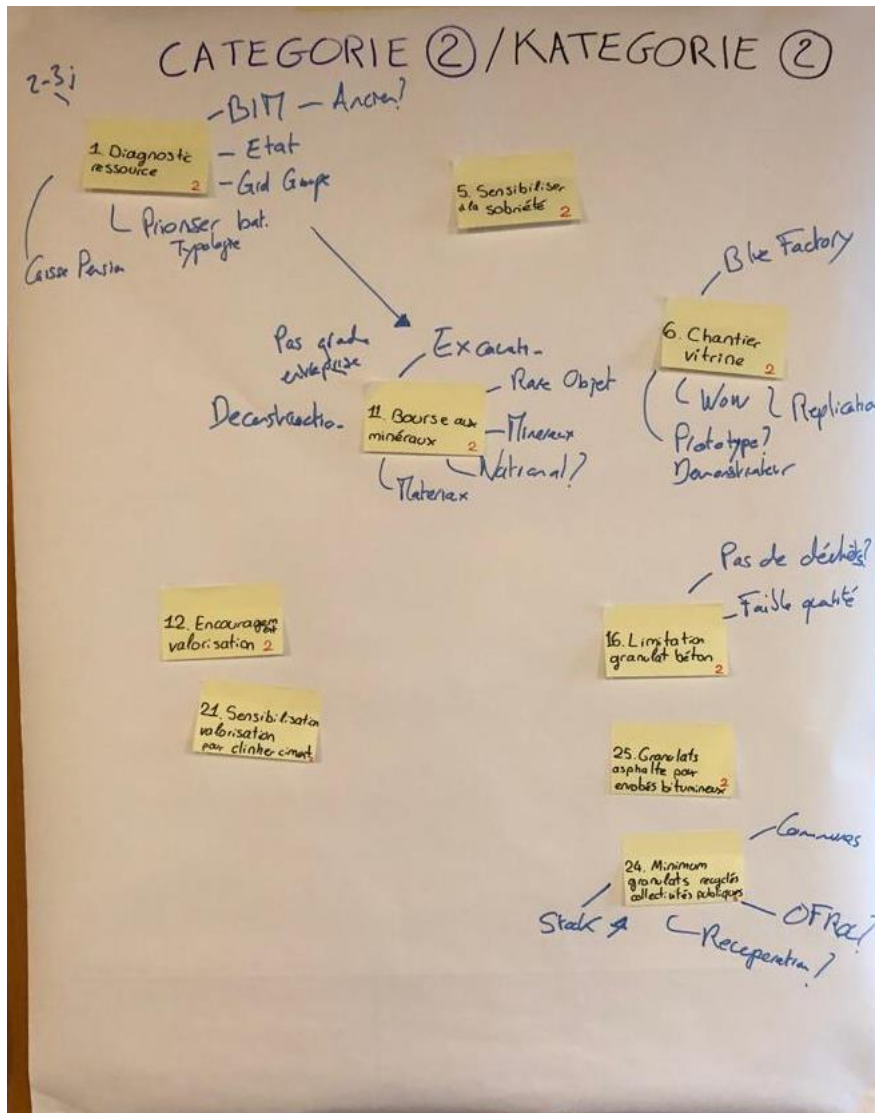 CATEGORIE ② / KATEGORIE ②
2-3j
BIM — Ancien?
1. Diagnostic
ressource 2
Etat
Grd Groupe
Prioriser bat.
Typologie
Caisse Pension
5. Sensibiliser
à la sobriété 2
Blue Factory
6. Chantier
vitrine 2
Wow
Replication
Prototype?
Demonstrateur
Pas grade
entreprise
Excavati-
Deconstructio-
11. Bourse aux
minéraux 2
Rare Objet
Mineraux
National?
Materiaux
12. Encouragement
valorisation 2
21. Sensibilisation
valorisation
pour clinker ciment
Pas de déchets?
Faible qualité
16. Limitation
granulat béton 2
25. Granulats
asphalte pour
enrobés bitumineux 2
24. Minimum
granulats recyclés
collectivités publiques
Communes
OFROU?
Recuperation?
Stock